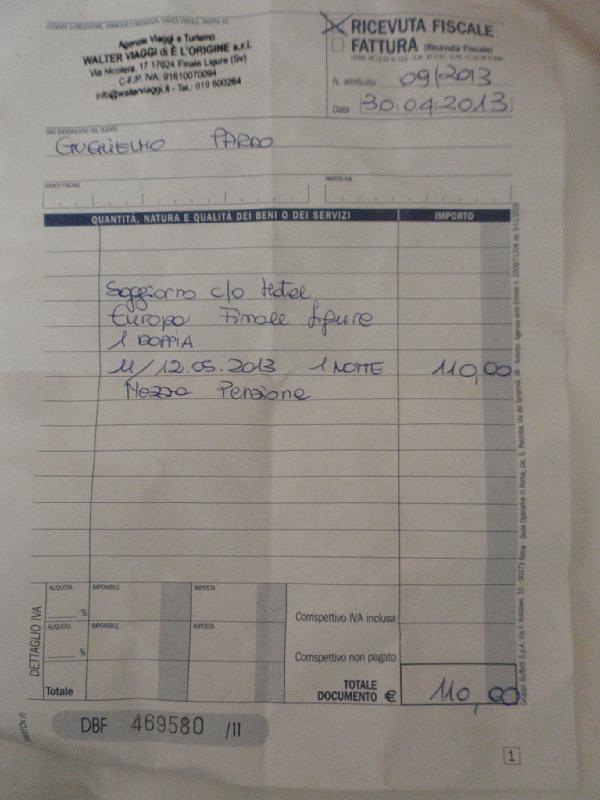 CEDENTE O PRESTATORE, DOMICILIO O RESIDENZA, CODICE FISCALE, PARTITA IVA
Agenzia Viaggi e Turismo
WALTER VIAGGI di È L'ORIGINE s.r.l.
Via Nicotera, 17 17024 Finale Ligure (Sv)
C.F./P. IVA: 01610070094
info@walterviaggi.it - Tel.: 019 600264
X RICEVUTA FISCALE
FATTURA (Ricevuta Fiscale)
N. attribuito 09/2013
Data 30.04.2013
DATI IDENTIFICATIVI DEL CLIENTE
GUGLIELMO PARDO
CODICE FISCALE
PARTITA IVA
QUANTITÀ, NATURA E QUALITÀ DEI BENI O DEI SERVIZI IMPORTO
Soggiorno c/o Hotel
Europa Finale Ligure
1 DOPPIA
11/12.05.2013 1 NOTTE 110,00
Mezza Pensione
DETTAGLIO IVA
ALIQUOTA IMPONIBILE IMPOSTA
%
Corrispettivo IVA inclusa
ALIQUOTA IMPONIBILE IMPOSTA
%
Corrispettivo non pagato
Totale
TOTALE
DOCUMENTO € 110,00
DBF 469580 /11
1